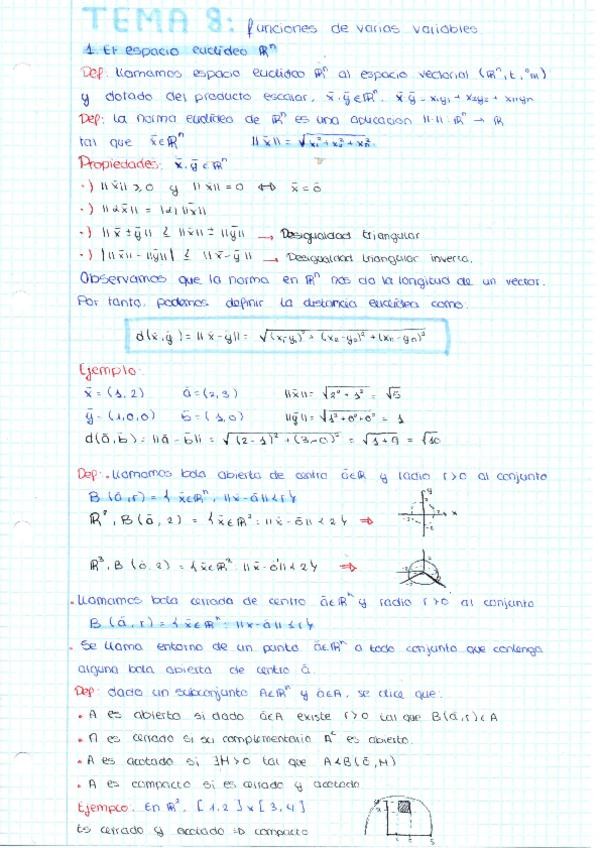 TEMA 8: funciones de varias variables
1. El espacio euclídeo ℝⁿ
Def: Llamamos espacio euclídeo ℝⁿ al espacio vectorial (ℝⁿ, +, ·ℝ)
y dotado del producto escalar, x̄·ȳ∈ℝⁿ, x̄·ȳ = x₁y₁ + x₂y₂ + xₙyₙ
Def: La norma euclídea de ℝⁿ es una aplicación ||·||: ℝⁿ → ℝ
tal que x̄∈ℝⁿ ||x̄|| = √(x₁² + x₂² + xₙ²)
Propiedades: x̄, ȳ∈ℝⁿ
·) ||x̄|| ≥ 0 y ||x̄|| = 0 ⇔ x̄ = ō
·) ||αx̄|| = |α| ||x̄||
·) ||x̄ ± ȳ|| ≤ ||x̄|| ± ||ȳ|| → Desigualdad triangular
·) | ||x̄|| - ||ȳ|| | ≤ ||x̄ - ȳ|| → Desigualdad triangular inversa.
Observamos que la norma en ℝⁿ nos da la longitud de un vector.
Por tanto, podemos definir la distancia euclídea como:
d(x̄, ȳ) = ||x̄ - ȳ|| = √((x₁-y₁)² + (x₂-y₂)² + (xₙ-yₙ)²)
Ejemplo:
x̄ = (1, 2) ā = (2, 3) ||x̄|| = √(2² + 1²) = √5
ȳ = (1, 0, 0) b̄ = (1, 0) ||ȳ|| = √(1² + 0² + 0²) = 1
d(ā, b̄) = ||ā - b̄|| = √((2-1)² + (3-0)²) = √(1+9) = √10
Def: · Llamamos bola abierta de centro ā∈ℝ y radio r>0 al conjunto
B(ā, r) = { x̄∈ℝⁿ, ||x̄ - ā|| < r }
ℝ², B(ō, 2) = { x̄∈ℝ²: ||x̄ - ō|| < 2 } ⇒
ℝ³, B(ō, 2) = { x̄∈ℝ³: ||x̄ - ō|| < 2 } ⇒
· Llamamos bola cerrada de centro ā∈ℝⁿ y radio r>0 al conjunto
B(ā, r) = { x̄∈ℝⁿ: ||x - ā|| ≤ r }
· Se llama entorno de un punto ā∈ℝⁿ a todo conjunto que contenga
alguna bola abierta de centro ā.
Def: dado un subconjunto A⊂ℝⁿ y ā∈A, se dice que:
· A es abierto si dado ā∈A existe r>0 tal que B(ā, r) ⊂ A
· A es cerrado si su complementario Aᶜ es abierto.
· A es acotado si ∃M>0 tal que A⊂B(ō, M)
· A es compacto si es cerrado y acotado
Ejemplo: En ℝ², [1, 2] x [3, 4]
Es cerrado y acotado ⇒ compacto